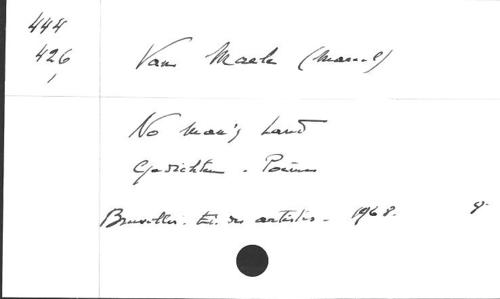 444
426
1
Van Maele (Marcel)
No man's Land
Gedichten - Poèmes
Bruxelles. Ed. des artistes - 1968. 8°